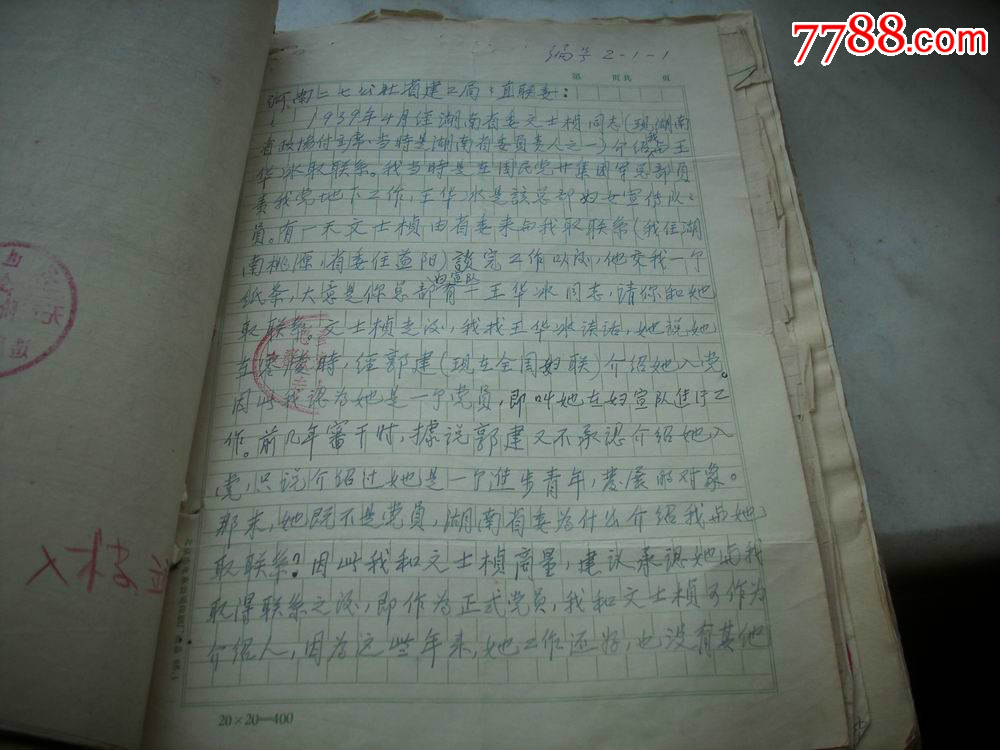 7788.com
编号 2-1-1
第 页共 页
河南二七公社省建工局:直联委:
1939年4月经湖南省委文士桢同志(现湖南
省政协付主席,当时是湖南省委负责人之一)介绍我与王
华冰取联系。我当时是在国民党廿集团军总部负
责我党地下工作,王华冰是该总部妇女宣传队
员。有一天文士桢由省委来与我取联系(我住湖
南桃源,省委住益阳)谈完工作以后,他交我一个
纸条,大意是你总部妇宣队有一王华冰同志,请你和她
取联系。文士桢走后,我找王华冰谈话,她说她
在 时,经郭建(现在全国妇联)介绍她入党。
因此我认为她是一个党员,即叫她在妇宣队进行工
作。前几年审干时,据说郭建又不承认介绍她入
党,只说介绍过她是一个进步青年,发展的对象。
那末,她既不是党员,湖南省委为什么介绍我与她
取联系?因此我和文士桢商量,建议承认她与我
取得联系之后,即作为正式党员,我和文士桢可作为
介绍人,因为这些年来,她工作还好,也没有其他
20×20=400